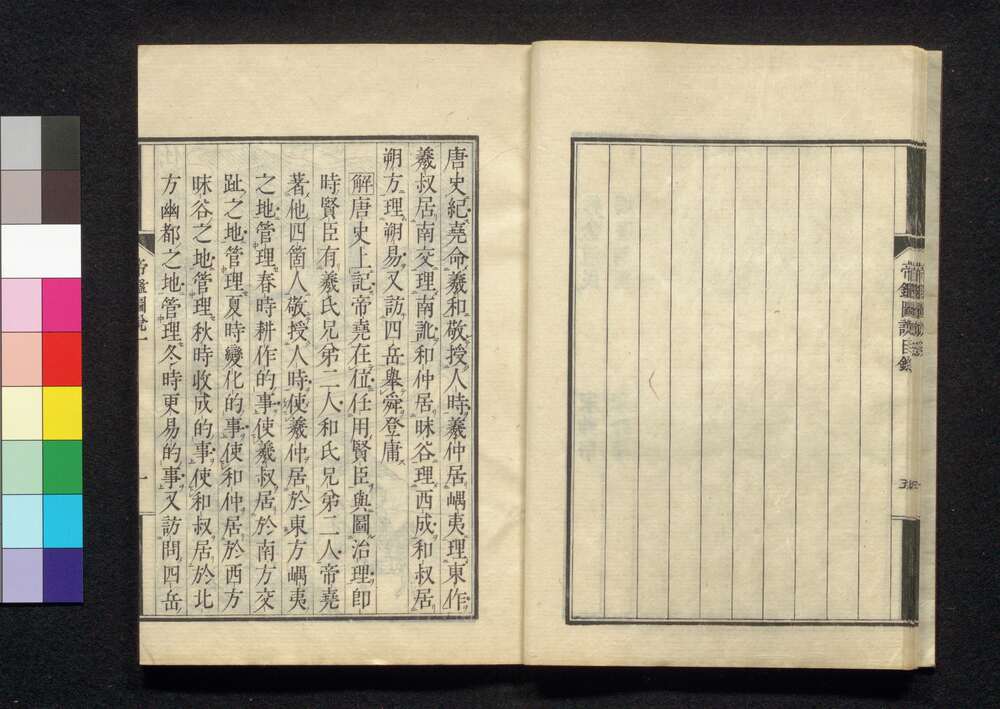 帝鑑圖說目錄
唐史紀堯命羲和敬授人時羲仲居嵎夷理東作
羲叔居南交理南訛和仲居昧谷理西成和叔居
朔方理朔易又訪四岳舉舜登庸
解唐史上記帝堯在位任用賢臣與圖治理即
時賢臣有羲氏兄弟二人和氏兄弟二人帝堯
著他四箇人敬授人時使羲仲居於東方嵎夷
之地管理春時耕作的事使羲叔居於南方交
趾之地管理夏時變化的事使和仲居於西方
昧谷之地管理秋時收成的事使和叔居於北
方幽都之地管理冬時更易的事又訪問四岳
帝鑑圖說一
一